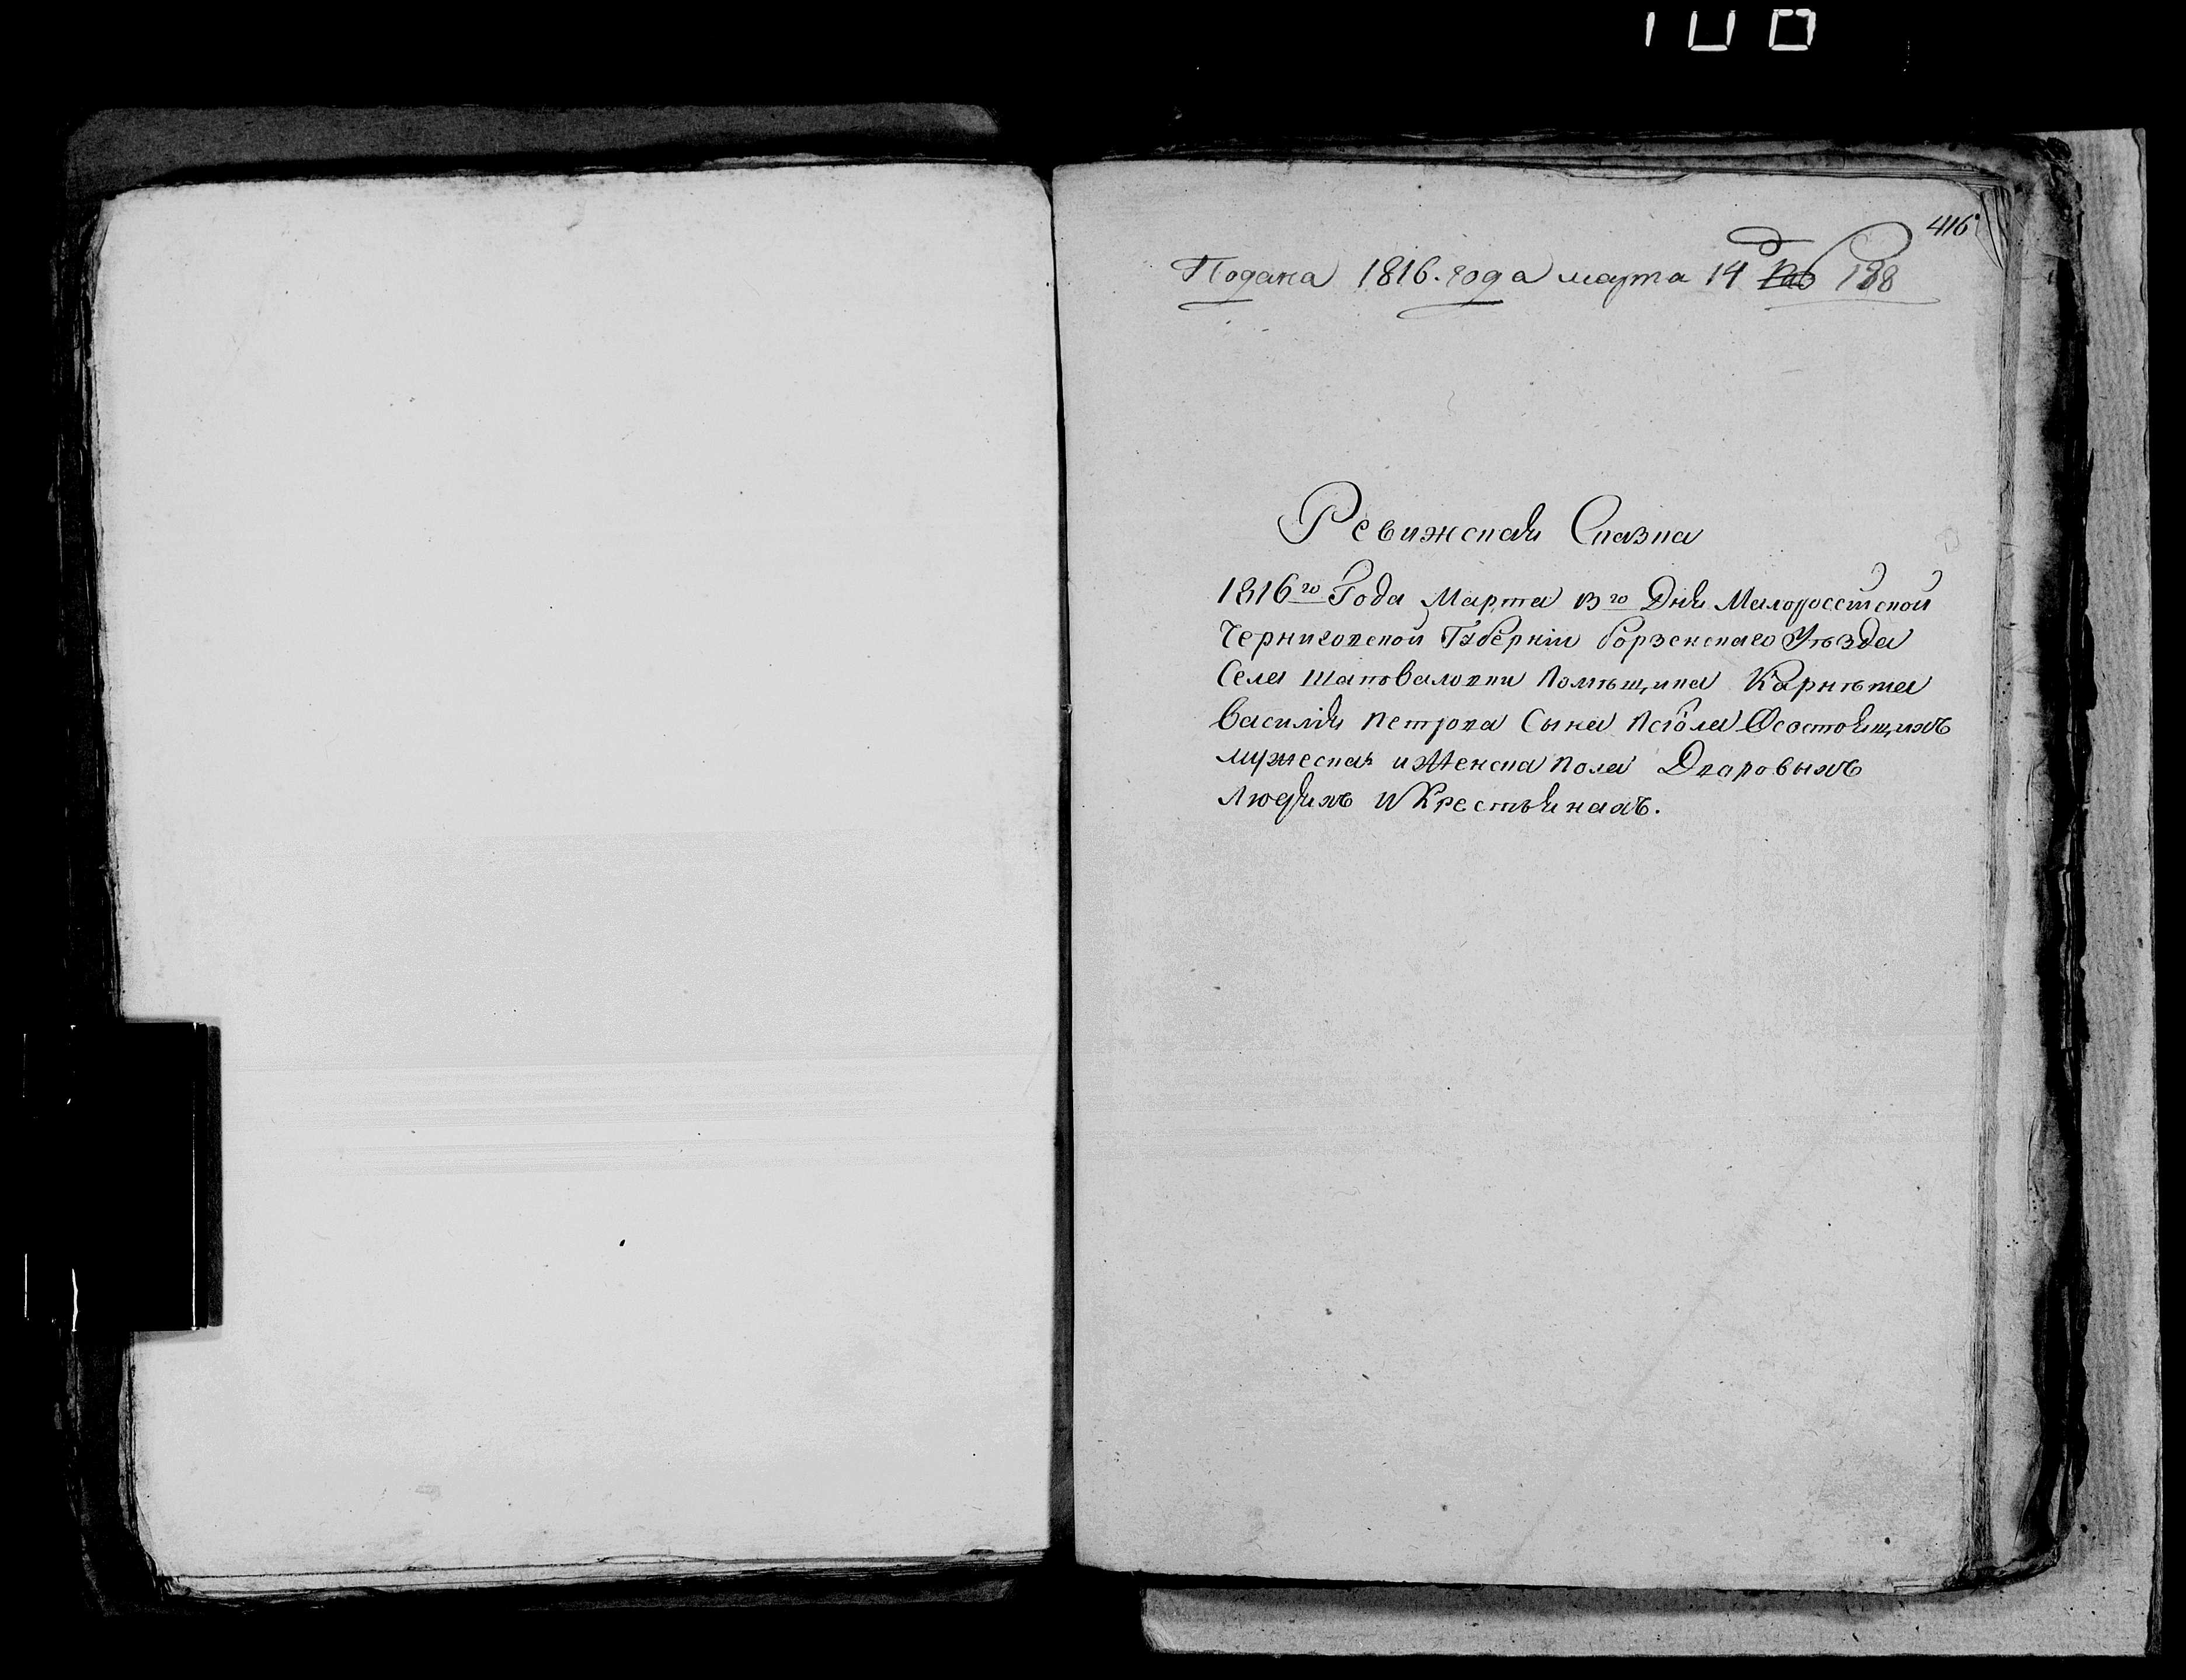 416
Подана 1816. года марта 14 188
Ревижская Сказка
1816го Года Марта 13го Дня Малороссійской
Черниговской Губерніи борзенскаго Уѣзда
Села Шаповаловки Помѣщика Карнѣта
Василія Петрова Сына Псіола Осостоящихъ
мужеска иЖенска Пола Дворовыхъ
Людяхъ и Крестьянахъ.